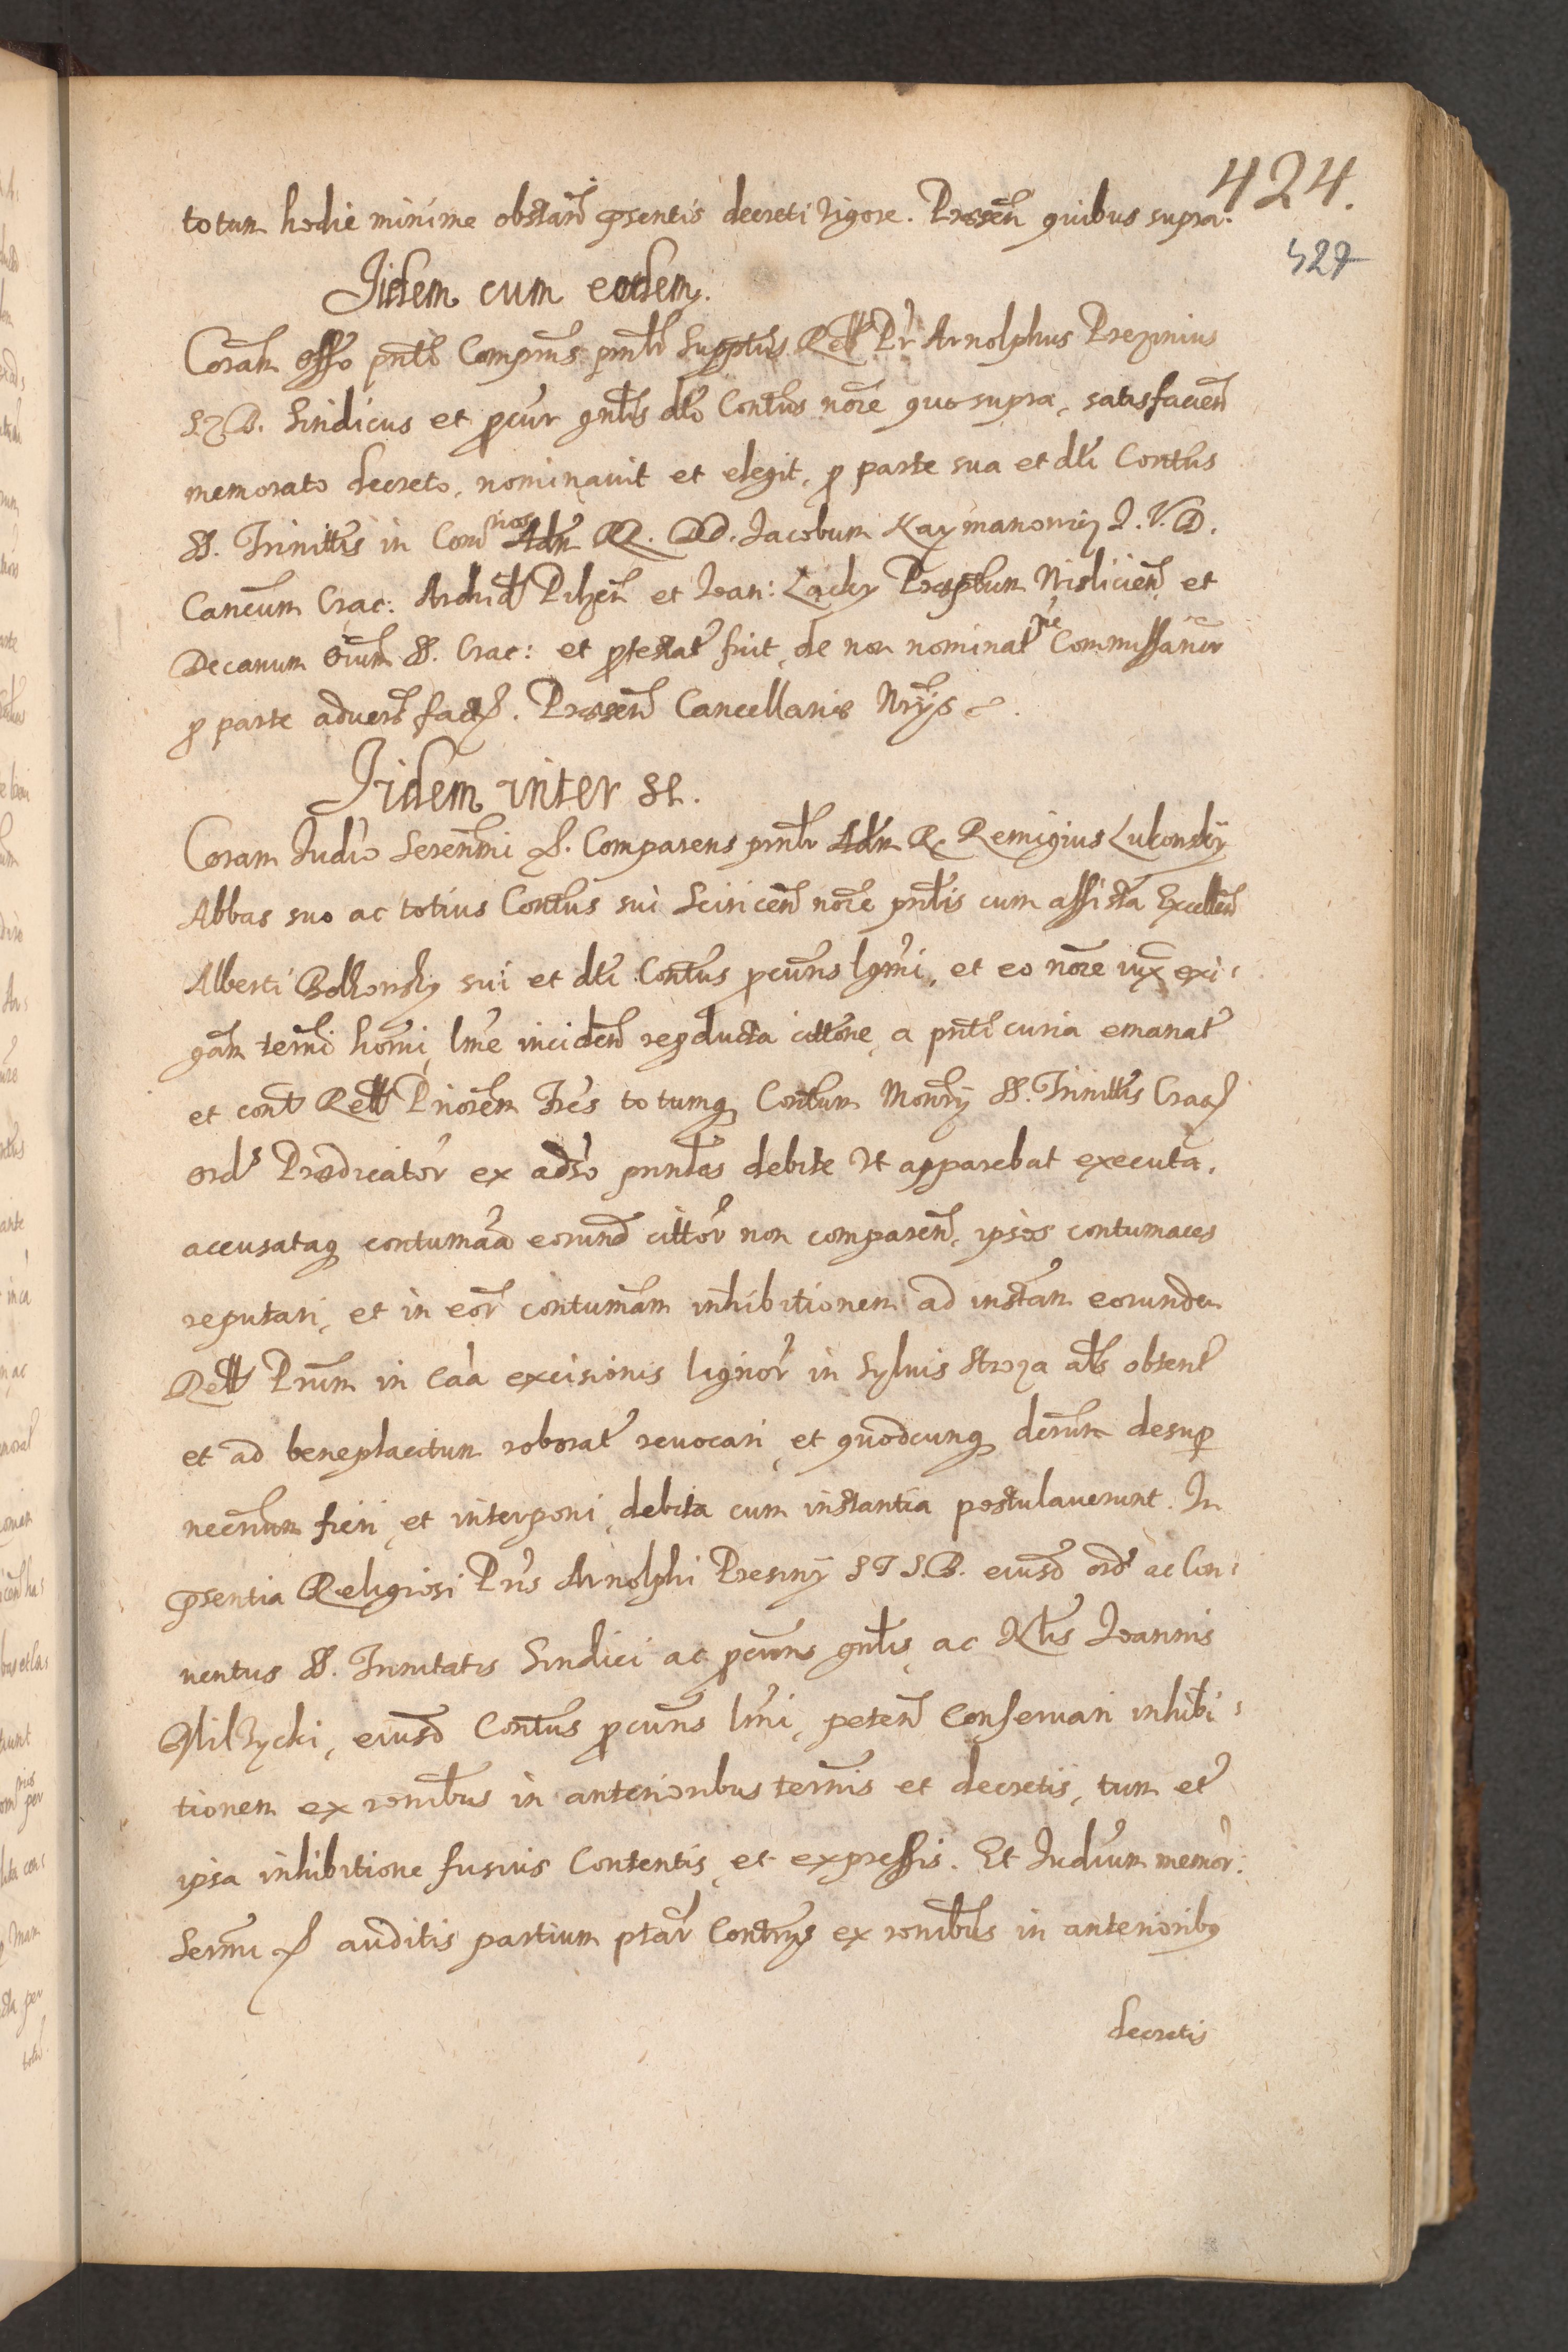 424.
totum hodie minime obstań pṡentis decreti vigore. Præsen̄ quibus supra.
427
Iidem cum eodem.
Coram offo pn̄ti Comprns prnlr Supptus Rel͞l Pr Arnolphus Prezinius
S. T. B. Sindicus et p̱cur gnlis dto Contus noīe quo supra, satisfacien̄
memorato decreto, nominavit et elegit, p̱ parte sua et dti Contus
SS. Trinittis in Com̄rios Adm̄ RR. DD. Iacobum Kaymanowicz I. V. D.
Cancum Crac: Archid Pilzen̄ et Ioan: Lącky Præptum Wislicien̄ et
Decanum Oium SS. Crac: et p̱testat fuit, de non nominat͞ne Commissarior
p̱ parte advers̄ facta. Præsen̄ Cancellariæ Nrijs
Iidem inter se.
Coram Iudio Seren̄mi &. Comparens prnlr Adm̄ R. Remigius Lukonsky
Abbas suo ac totius Contus sui Sciricen̄ noīe pn̄lis cum assista Excellen̄
Alberti Bolkonsky sui et dti Contus p̱curis lgmi, et eo noīe iux̄ exi-
gam termi horni, lme inciden̄ rep̱ducta citt͞one, a pn̄ti curia emanat
et cont Rel͞l Priorem Fres totumq̨ Contum Monrij SS. Trinittis Crac
ords Prædicator ex adso prnlas debite Ut apparebat executa,
accusataq̨ contumacia eorund cittor non comparen̄, ipsos contumaces
reputari, et in eor contumam inhibitionem ad instam eorundem
Rel͞l Prum in Caa excisionis lignor in Sylvis Stroza als obtent
et ad beneplacitum roborat revocari, et quodcunq̨ decrum desup̱
necrium fieri, et interponi, debita cum instantia postulaverunt. In
pṡentia Religiosi Pris Arnolphi Presiny S T S. B. eiusd ords ac Con-
ventus SS. Trinitatis Sindici ac p̱curis gnlis, ac Nlis Ioannis
Milzycki, eiusd Contus p̱curis lmi, peten̄ Conservari inhibi-
tionem ex ronibus in anterioribus termis et decretis, tum et
ipsa inhibitione fusius Contentis, et expressis. Et Iudium memor:
Sermi & auditis partium ptar Contrijs ex ronibus in anterioribq̨
decretis